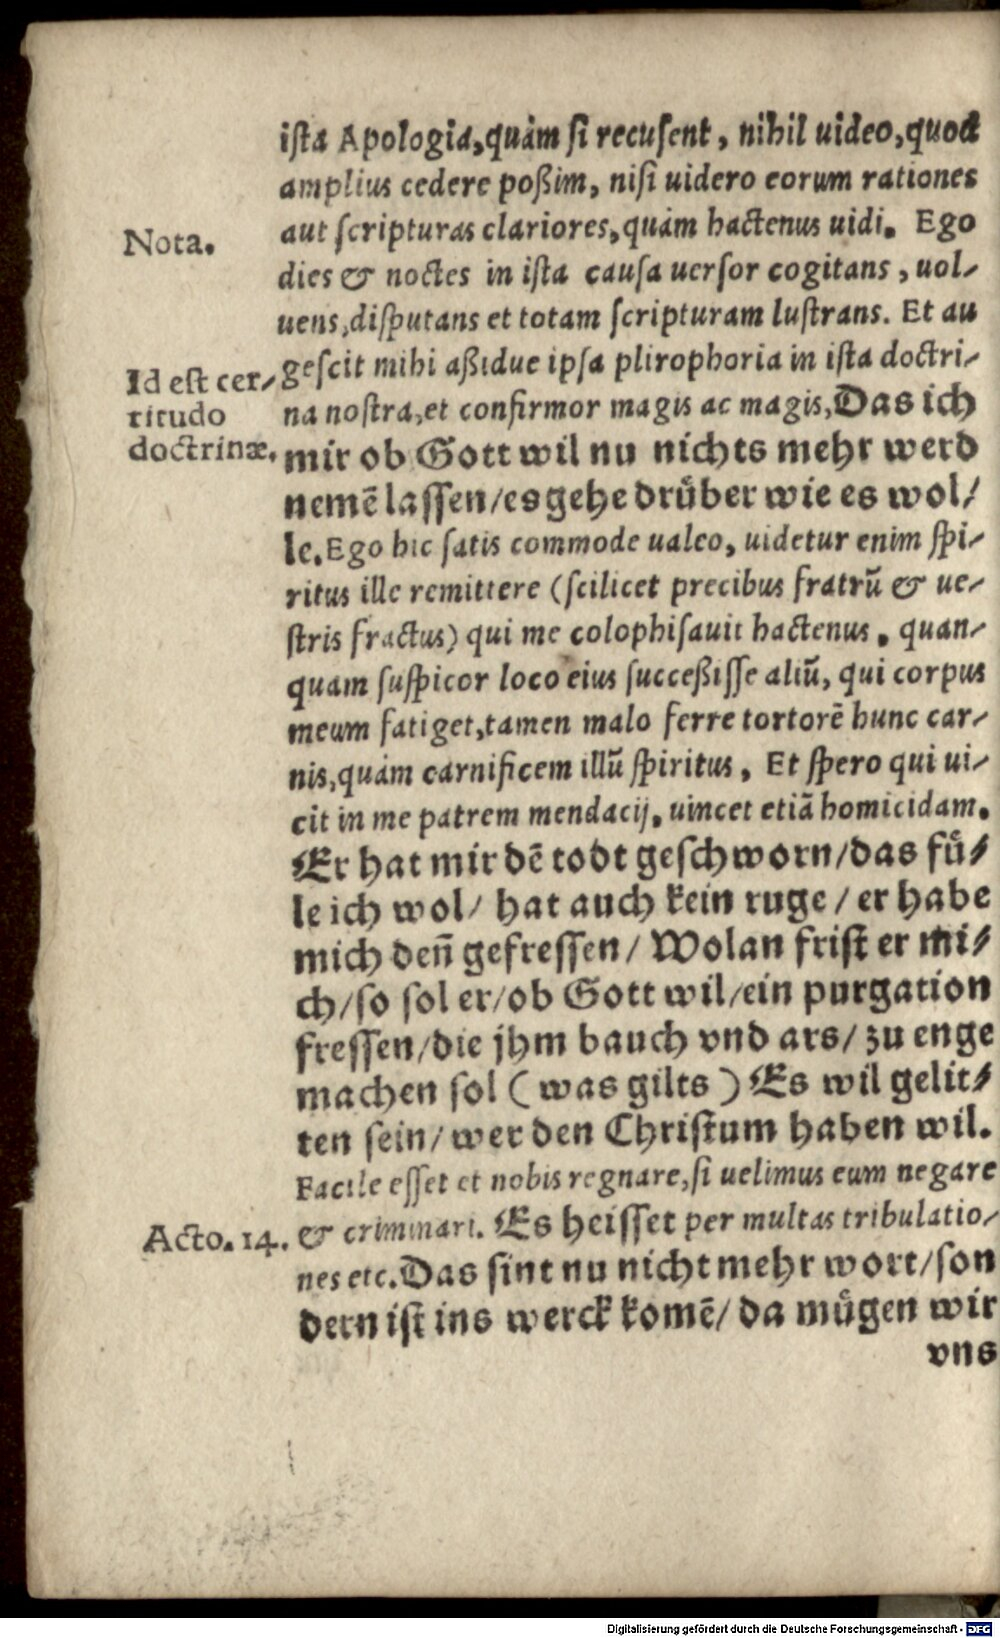 ista Apologia, quàm si recusent, nihil uideo, quod
amplius cedere poßim, nisi uidero eorum rationes
Nota.
aut scripturas clariores, quàm hactenus uidi. Ego
dies & noctes in ista causa uersor cogitans, uol-
uens, disputans et totam scripturam lustrans. Et au
Id est cer-
titudo
doctrinæ.
gescit mihi aßidue ipsa plirophoria in ista doctri-
na nostra, et confirmor magis ac magis, Das ich
mir ob Gott wil nu nichts mehr werd
nemē lassen/es gehe drüber wie es wol/
le. Ego hic satis commode ualeo, uidetur enim spi-
ritus ille remittere (scilicet precibus fratrū & ue-
stris fractus) qui me colophisauit hactenus. quan-
quam suspicor loco eius succeßisse aliū, qui corpus
meum fatiget, tamen malo ferre tortorē hunc car-
nis, quàm carnificem illū spiritus. Et spero qui ui-
cit in me patrem mendacij, uincet etiā homicidam.
Er hat mir dē todt geschworn/das fü/
le ich wol/ hat auch kein ruge/ er habe
mich deñ gefressen/ Wolan frist er mi/
ch/so sol er/ob Gott wil/ein purgation
fressen/die jhm bauch vnd ars/ zu enge
machen sol (was gilts) Es wil gelit/
ten sein/wer den Christum haben wil.
Facile esset et nobis regnare, si uelimus eum negare
Acto. 14.
& criminari. Es heisset per multas tribulatio-
nes etc. Das sint nu nicht mehr wort/son
dern ist ins werck komē/ da mügen wir
vns
Digitalisierung gefördert durch die Deutsche Forschungsgemeinschaft - DFG